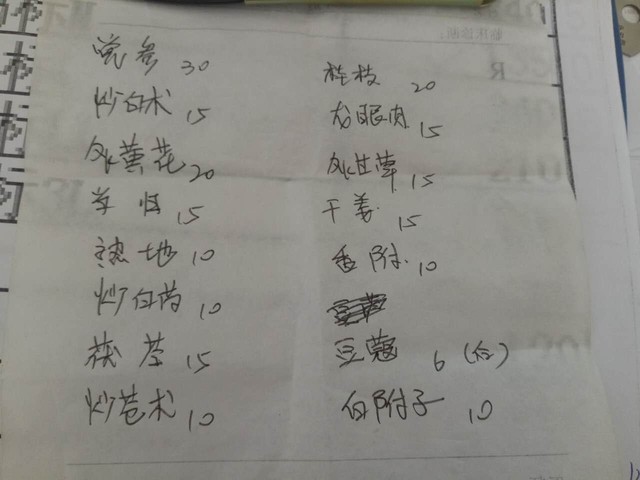 党参 30
炒白术 15
炙黄芪 20
当归 15
熟地 10
炒白芍 10
茯苓 15
炒苍术 10
桂枝 20
龙眼肉 15
炙甘草 15
干姜 15
香附 10
豆蔻 6 (后)
白附子 10
R